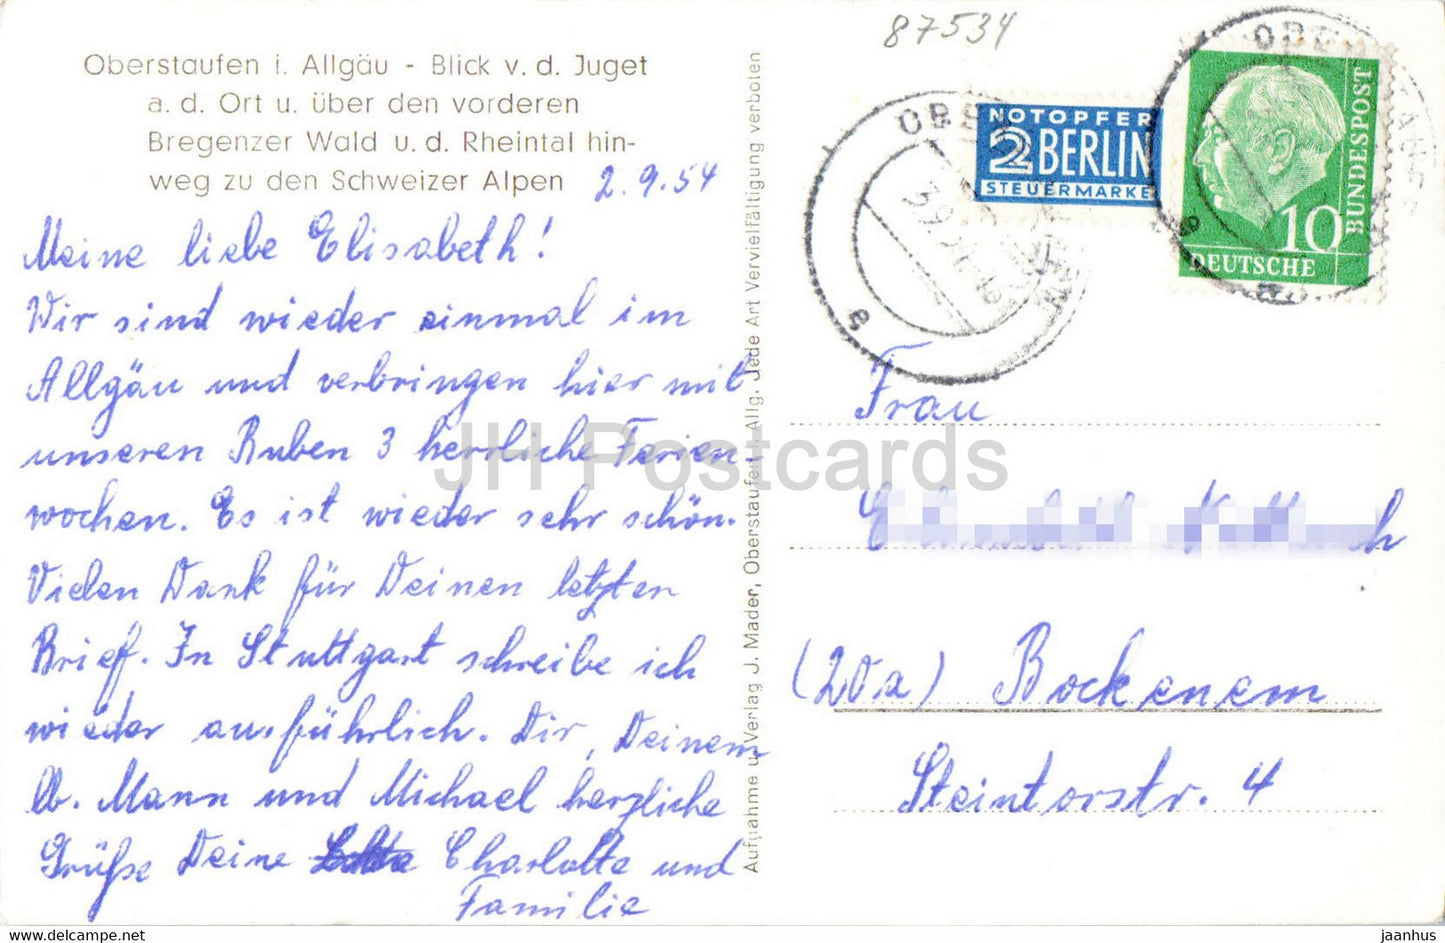 Oberstaufen i. Allgäu - Blick v. d. Juget
a. d. Ort u. über den vorderen
Bregenzer Wald u. d. Rheintal hin-
weg zu den Schweizer Alpen
2.9.54
Meine liebe Elisabeth!
Wir sind wieder einmal im
Allgäu und verbringen hier mit
unseren Buben 3 herrliche Ferien-
wochen. Es ist wieder sehr schön.
Vielen Dank für Deinen letzten
Brief. In Stuttgart schreibe ich
wieder ausführlich. Dir, Deinem
lb. Mann und Michael herzliche
Grüße Deine Charlotte und
Familie
Aufnahme u. Verlag J. Mader, Oberstaufen i. Allg. Jede Art Vervielfältigung verboten
87534
NOTOPFER
2 BERLIN
STEUERMARKE
DEUTSCHE
BUNDESPOST
10
Frau
(20a) Bockenem
Steintorstr. 4
JH Postcards
https://www.delcampe.net
jaanhus